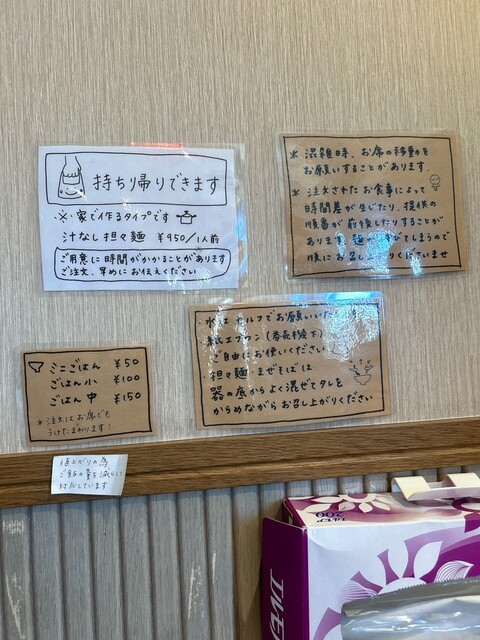 持ち帰りできます
※・家で作るタイプです
汁なし担々麺 ¥950/1人前
ご用意に時間がかかることがあります
ご注文、早めにお伝えください
* 混雑時、お席の移動を
お願いすることがあります。
* 注文されたお食事によって
時間差が生じたり、提供の
順番が前後したりすることが
あります。麺が
てしまうので
順にお召し
くださいませ
・水は セルフでお願いいた
・紙エプロン(券売機横下)
ご自由にお使いください
・担々麺・まぜそばは
器の底からよく混ぜてタレを
からめながら お召し上がりください
ミニごはん ¥50
ごはん 小 ¥100
ごはん 中 ¥150
* 注文はお席でも
うけたまわります!
値上がりの為
ご飯の量を減らして
対応しています
200